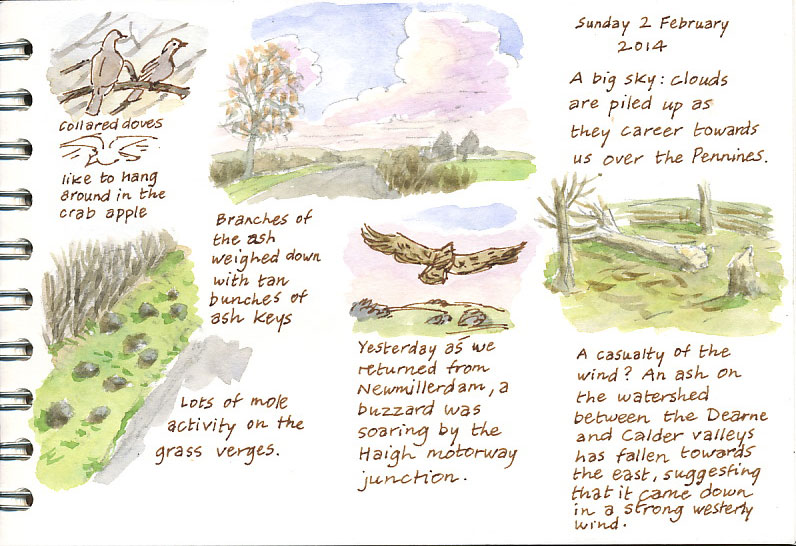 Sunday 2 February
2014
A big sky: clouds
are piled up as
they career towards
us over the Pennines.
Collared doves
like to hang
around in the
crab apple
Branches of
the ash
weighed down
with tan
bunches of
ash keys
Lots of mole
activity on the
grass verges.
Yesterday as we
returned from
Newmillerdam, a
buzzard was
soaring by the
Haigh motorway
junction.
A casualty of the
wind? An ash on
the watershed
between the Dearne
and Calder valleys
has fallen towards
the east, suggesting
that it came down
in a strong westerly
wind.